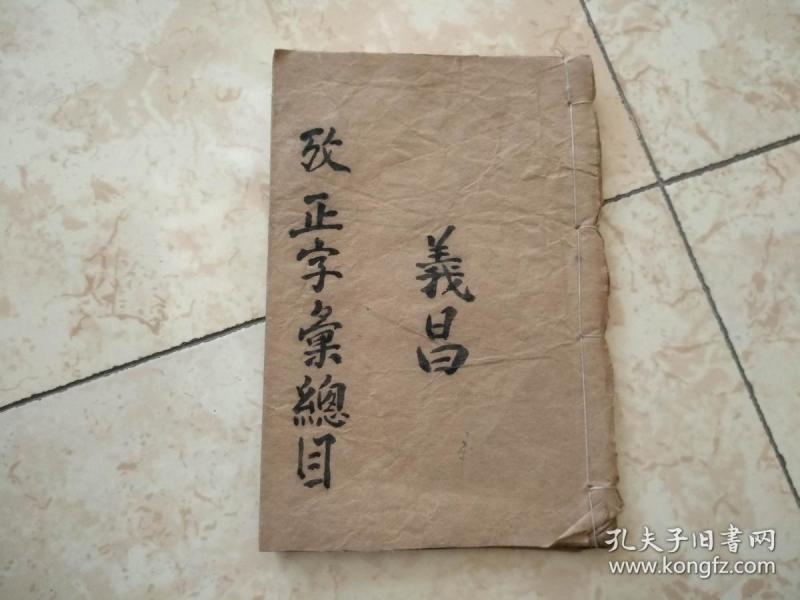 義昌
攷正字彙總目
孔夫子旧書网
www.kongfz.com